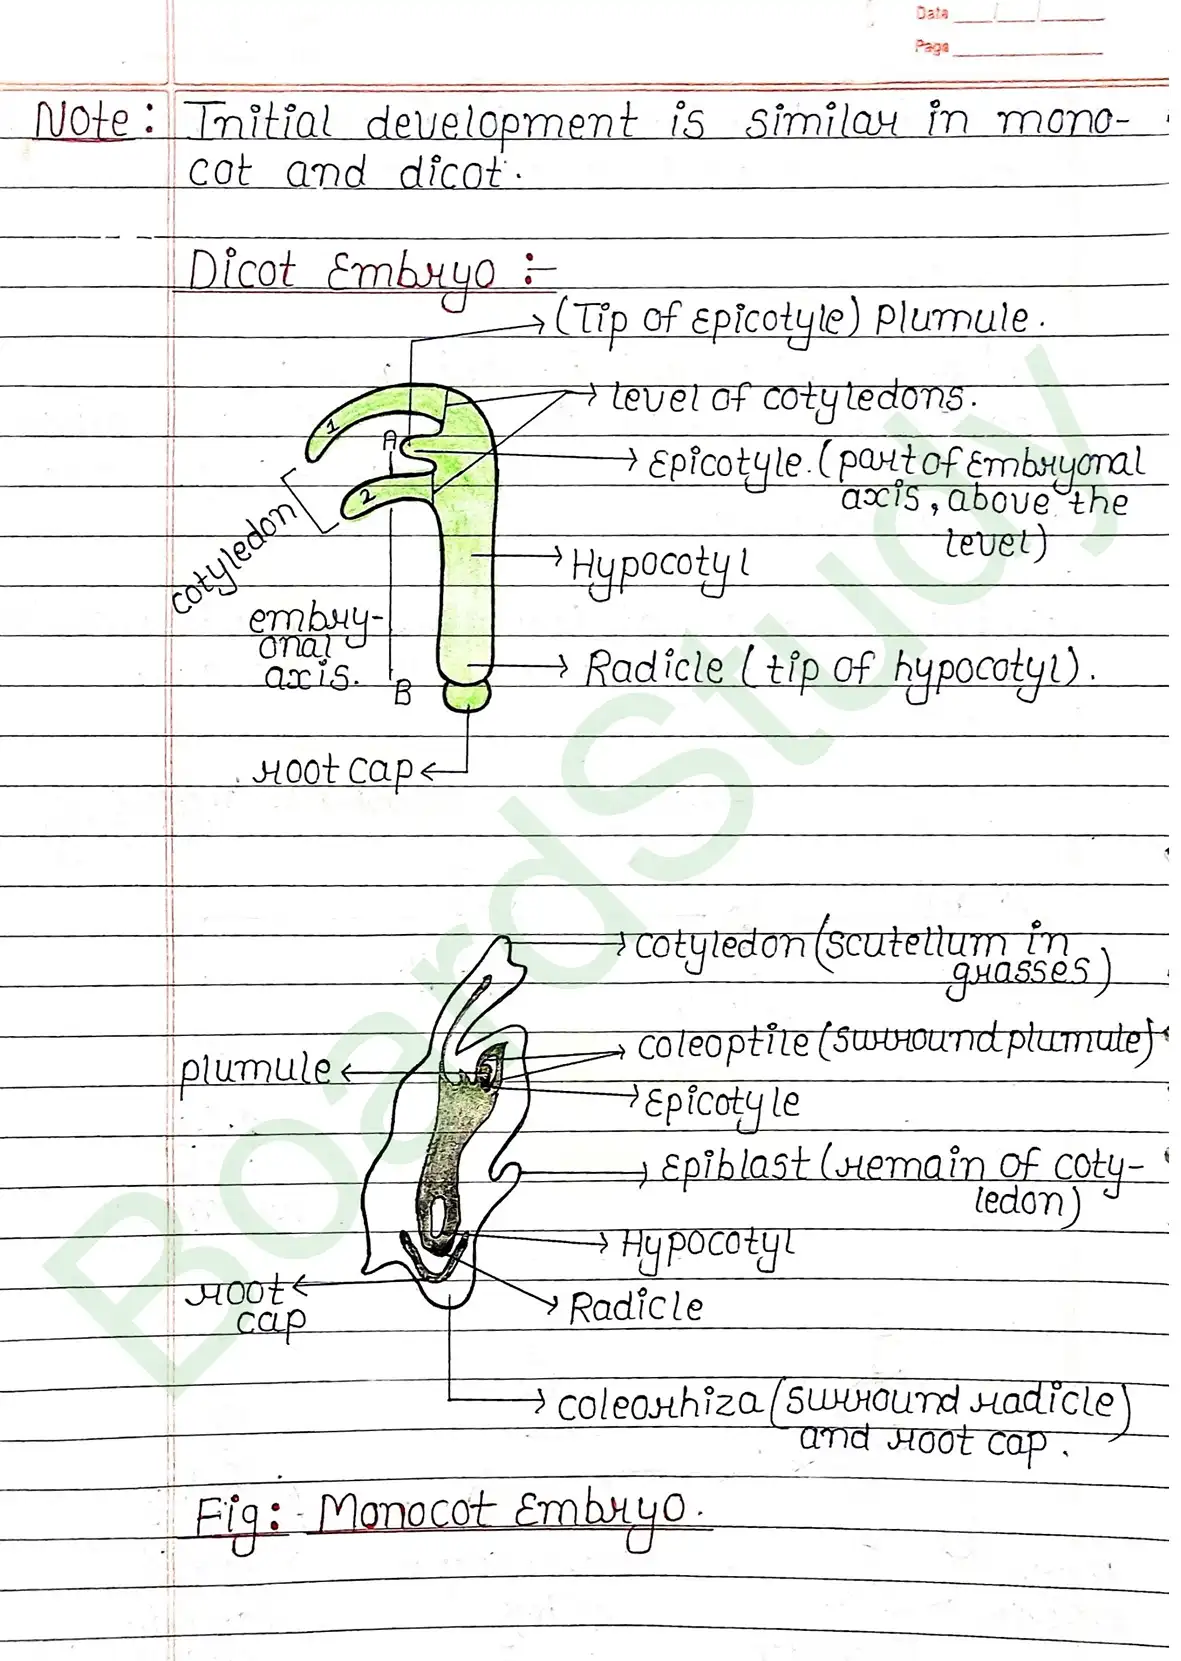 Date
Page
Note: Initial development is similar in mono-
cot and dicot.
Dicot Embryo :-
(Tip of Epicotyle) Plumule.
level of cotyledons.
1
A
Epicotyle. (part of Embryonal
axis, above the
level)
2
cotyledon
Hypocotyl
embry-
onal
axis.
B
Radicle (tip of hypocotyl).
root cap
cotyledon (scutellum in
grasses)
coleoptile (surround plumule)
plumule
Epicotyle
Epiblast (remain of coty-
ledon)
Hypocotyl
root
cap
Radicle
coleorhiza (surround radicle)
and root cap.
Fig: Monocot Embryo.
BoardStudy